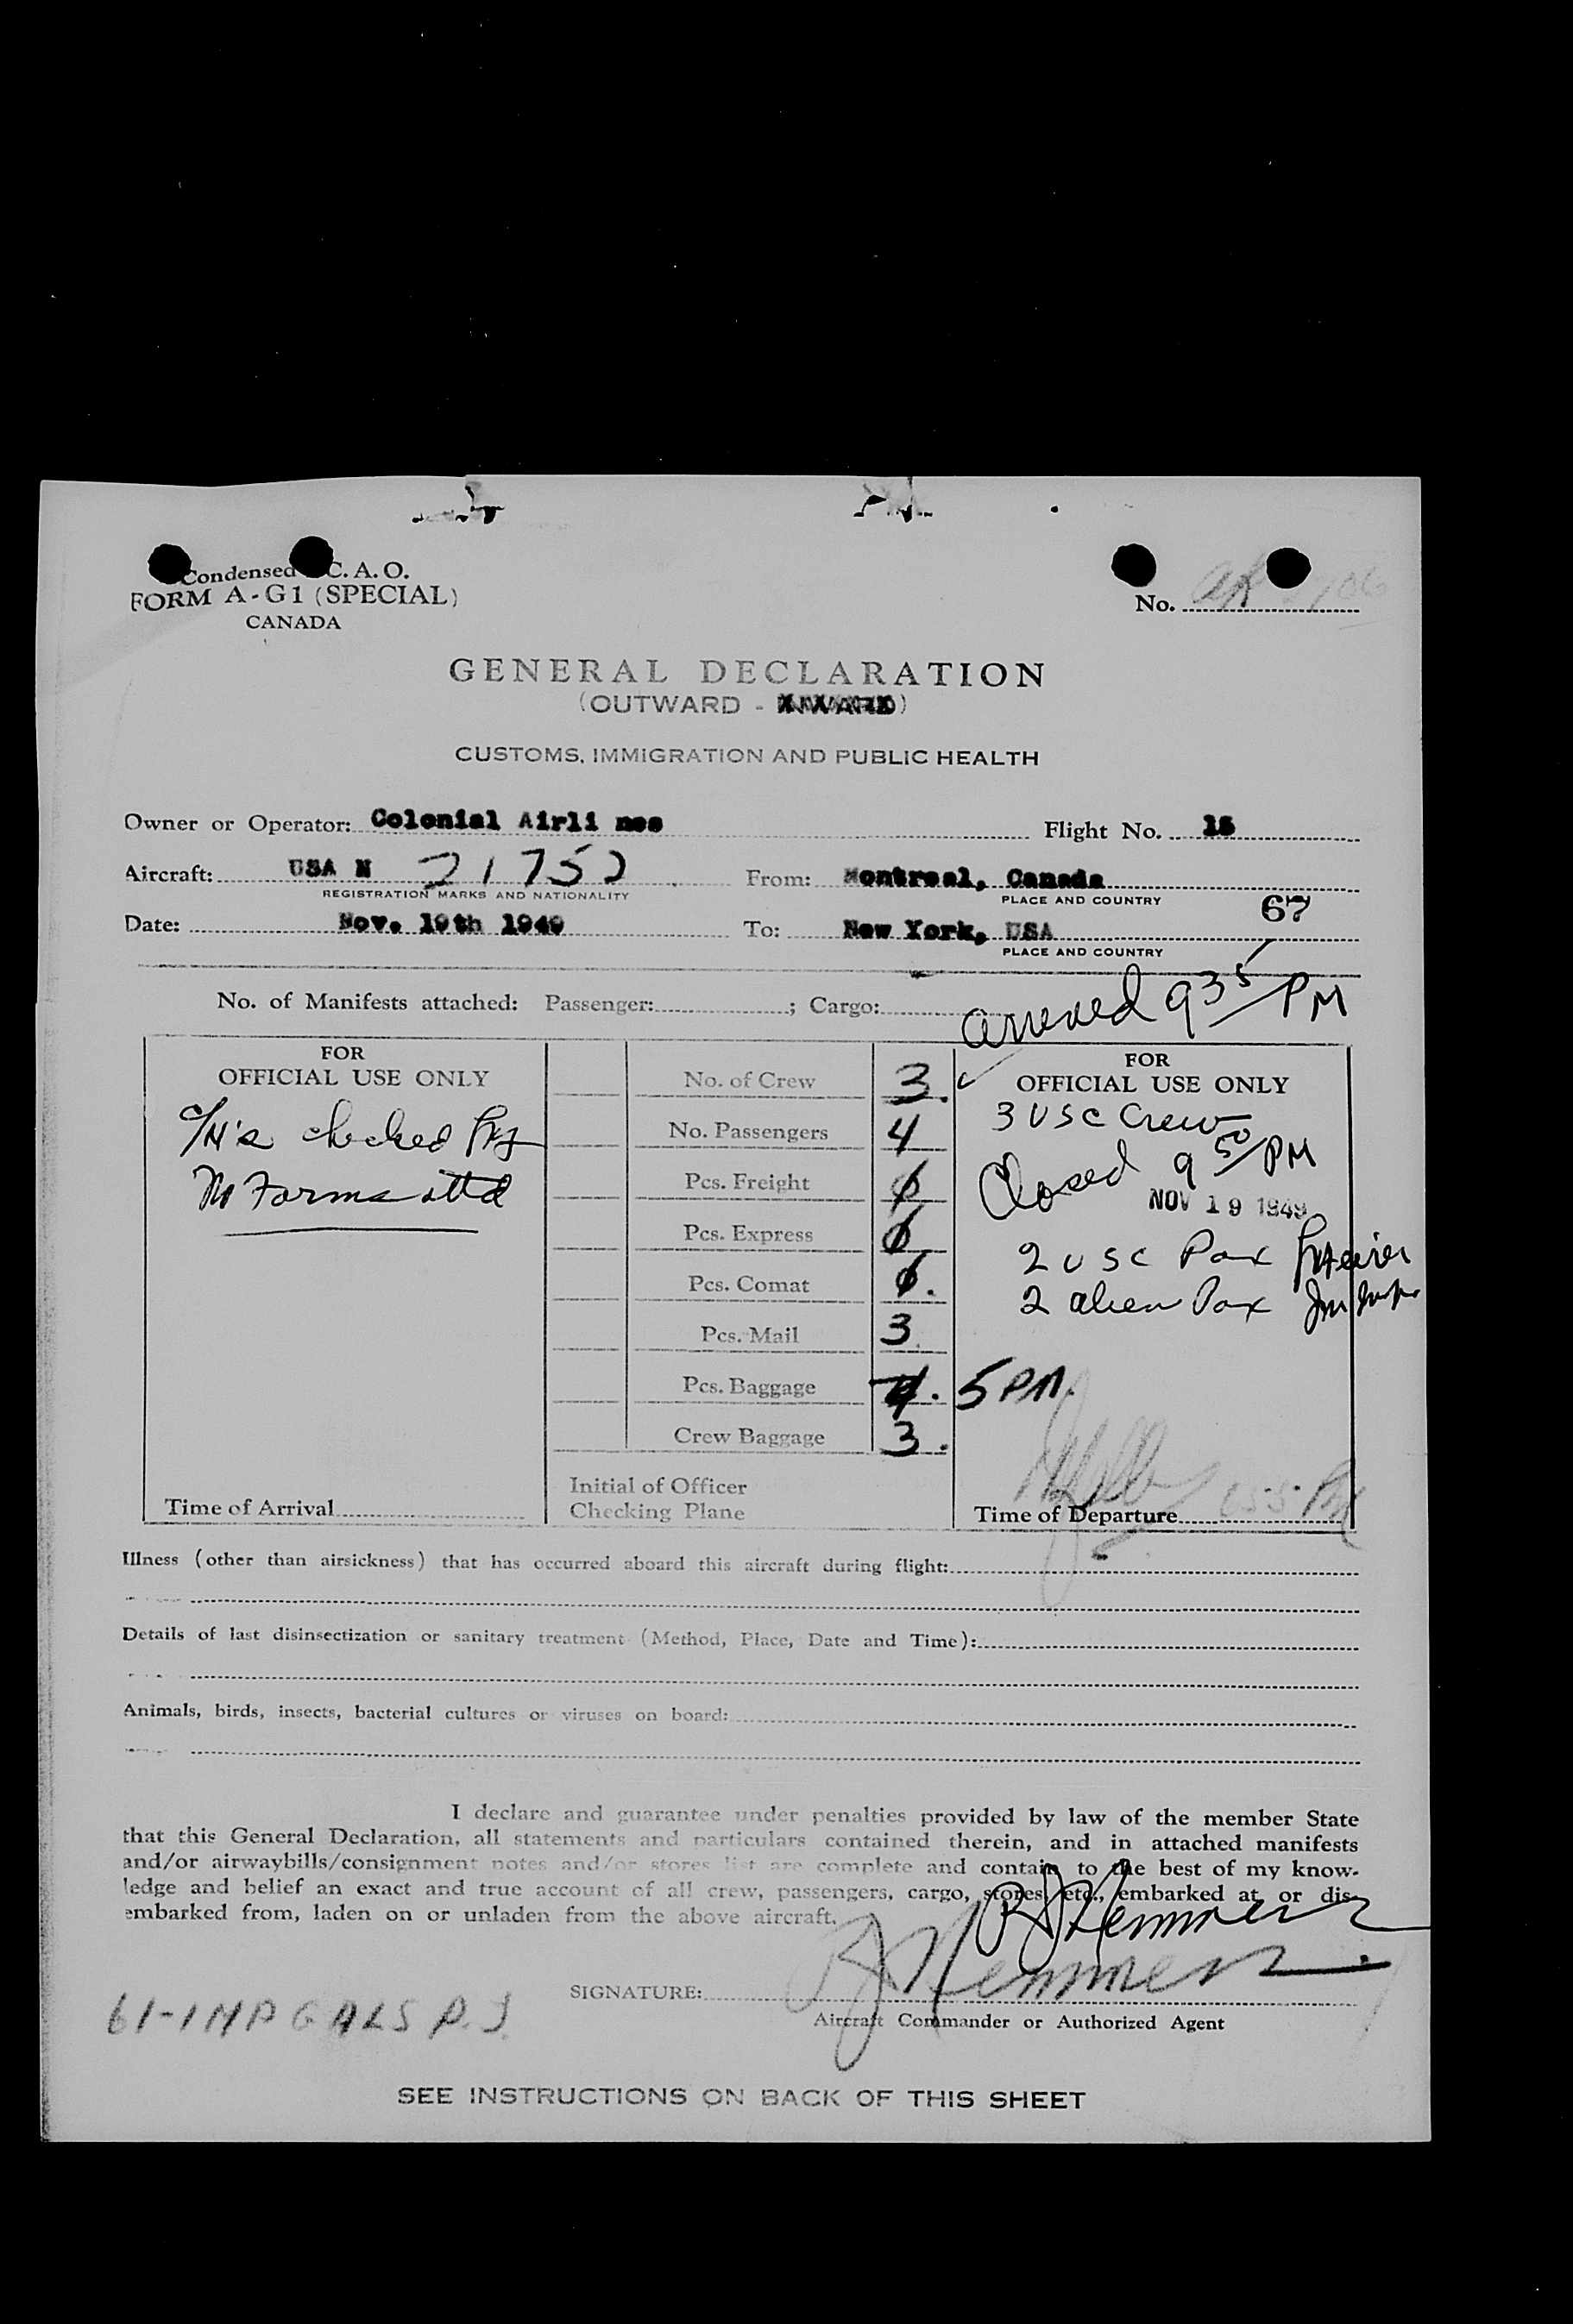 Condensed C.A.O.
FORM A-G1 (SPECIAL)
CANADA
No.
GENERAL DECLARATION
(OUTWARD - )
CUSTOMS, IMMIGRATION AND PUBLIC HEALTH
Owner or Operator: Colonial Airli nes Flight No. 15
Aircraft: USA N 21752 From: Montreal, Canada
REGISTRATION MARKS AND NATIONALITY PLACE AND COUNTRY
67
Date: Nov. 19th 1949 To: New York, USA
PLACE AND COUNTRY
No. of Manifests attached: Passenger: ; Cargo:
arrived 9 35 PM
FOR
OFFICIAL USE ONLY
checked
Forms attd
Time of Arrival
No. of Crew 3.
No. Passengers 4
Pcs. Freight
Pcs. Express
Pcs. Comat
Pcs. Mail 3
Pcs. Baggage 4. 5 PM.
Crew Baggage 3.
Initial of Officer
Checking Plane
FOR
OFFICIAL USE ONLY
3 USC Crew
Closed 9 50 PM
NOV 19 1949
2 USC Pax
2 alien Pax
Time of Departure
Illness (other than airsickness) that has occurred aboard this aircraft during flight:
Details of last disinsectization or sanitary treatment (Method, Place, Date and Time):
Animals, birds, insects, bacterial cultures or viruses on board:
I declare and guarantee under penalties provided by law of the member State
that this General Declaration, all statements and particulars contained therein, and in attached manifests
and/or airwaybills/consignment notes and/or stores list are complete and contain to the best of my know-
ledge and belief an exact and true account of all crew, passengers, cargo, stores, etc., embarked at or dis-
embarked from, laden on or unladen from the above aircraft.
SIGNATURE:
Aircraft Commander or Authorized Agent
SEE INSTRUCTIONS ON BACK OF THIS SHEET